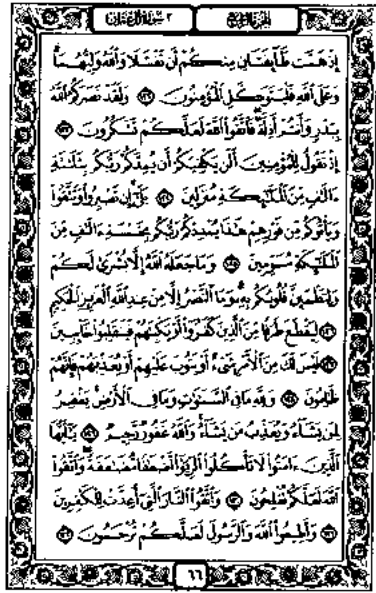 الجزء الرابع ٣ سورة آل عمران
إِذْ هَمَّت طَّآئِفَتَانِ مِنكُمْ أَن تَفْشَلَا وَٱللَّهُ وَلِيُّهُمَا
وَعَلَى ٱللَّهِ فَلْيَتَوَكَّلِ ٱلْمُؤْمِنُونَ ١٢٢ وَلَقَدْ نَصَرَكُمُ ٱللَّهُ
بِبَدْرٍ وَأَنتُمْ أَذِلَّةٌ فَٱتَّقُوا۟ ٱللَّهَ لَعَلَّكُمْ تَشْكُرُونَ ١٢٣
إِذْ تَقُولُ لِلْمُؤْمِنِينَ أَلَن يَكْفِيَكُمْ أَن يُمِدَّكُمْ رَبُّكُم بِثَلَـٰثَةِ
ءَالَـٰفٍ مِّنَ ٱلْمَلَـٰٓئِكَةِ مُنزَلِينَ ١٢٤ بَلَىٰٓ إِن تَصْبِرُوا۟ وَتَتَّقُوا۟
وَيَأْتُوكُم مِّن فَوْرِهِمْ هَـٰذَا يُمْدِدْكُمْ رَبُّكُم بِخَمْسَةِ ءَالَـٰفٍ مِّنَ
ٱلْمَلَـٰٓئِكَةِ مُسَوِّمِينَ ١٢٥ وَمَا جَعَلَهُ ٱللَّهُ إِلَّا بُشْرَىٰ لَكُمْ
وَلِتَطْمَئِنَّ قُلُوبُكُم بِهِۦ وَمَا ٱلنَّصْرُ إِلَّا مِنْ عِندِ ٱللَّهِ ٱلْعَزِيزِ ٱلْحَكِيمِ
١٢٦ لِيَقْطَعَ طَرَفًا مِّنَ ٱلَّذِينَ كَفَرُوٓا۟ أَوْ يَكْبِتَهُمْ فَيَنقَلِبُوا۟ خَآئِبِينَ
١٢٧ لَيْسَ لَكَ مِنَ ٱلْأَمْرِ شَىْءٌ أَوْ يَتُوبَ عَلَيْهِمْ أَوْ يُعَذِّبَهُمْ فَإِنَّهُمْ
ظَـٰلِمُونَ ١٢٨ وَلِلَّهِ مَا فِى ٱلسَّمَـٰوَٰتِ وَمَا فِى ٱلْأَرْضِ يَغْفِرُ
لِمَن يَشَآءُ وَيُعَذِّبُ مَن يَشَآءُ وَٱللَّهُ غَفُورٌ رَّحِيمٌ ١٢٩ يَـٰٓأَيُّهَا
ٱلَّذِينَ ءَامَنُوا۟ لَا تَأْكُلُوا۟ ٱلرِّبَوٰٓا۟ أَضْعَـٰفًا مُّضَـٰعَفَةً وَٱتَّقُوا۟
ٱللَّهَ لَعَلَّكُمْ تُفْلِحُونَ ١٣٠ وَٱتَّقُوا۟ ٱلنَّارَ ٱلَّتِىٓ أُعِدَّتْ لِلْكَـٰفِرِينَ
١٣١ وَأَطِيعُوا۟ ٱللَّهَ وَٱلرَّسُولَ لَعَلَّكُمْ تُرْحَمُونَ ١٣٢
٦٦